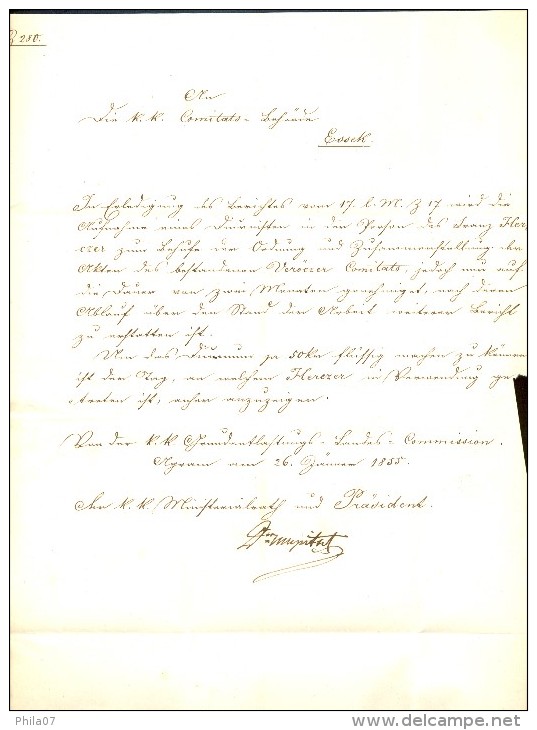 Z 280.
An
Die k. k. Comitats-Behörde
Essek.
In Erledigung des Berichtes vom 17. l. M. Z 17 wird die
Aufnahme eines Diurnisten in der Person des Franz Her-
czer zum Behufe der Ordnung und Zusammenstellung der
Akten des bestandenen Veröczer Comitats, jedoch nur auf
die Dauer von zwei Monaten genehmiget, nach deren
Ablauf über den Stand der Arbeit weiteren Bericht
zu erstatten ist.
Um das Diurnum pr 50 kr flüssig machen zu können
ist der Tag, an welchem Herczer in Verwendung ge-
treten ist, anher anzuzeigen.
Von der k. k. Grundentlastungs-Landes-Commission.
Agram am 26. Jänner 1855.
Der k. k. Ministerialrath und Präsident.
Phila07
www.delcampe.net